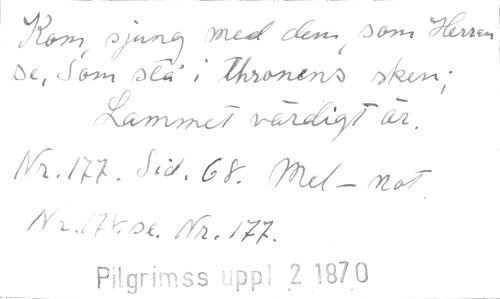 Kom, sjung med dem, som Herren
se, Som stå i thronens sken;
Lammet värdigt är.
Nr. 177. Sid. 68. Mel-not.
Nr. 178. se. Nr. 177.
Pilgrimss uppl 2 1870